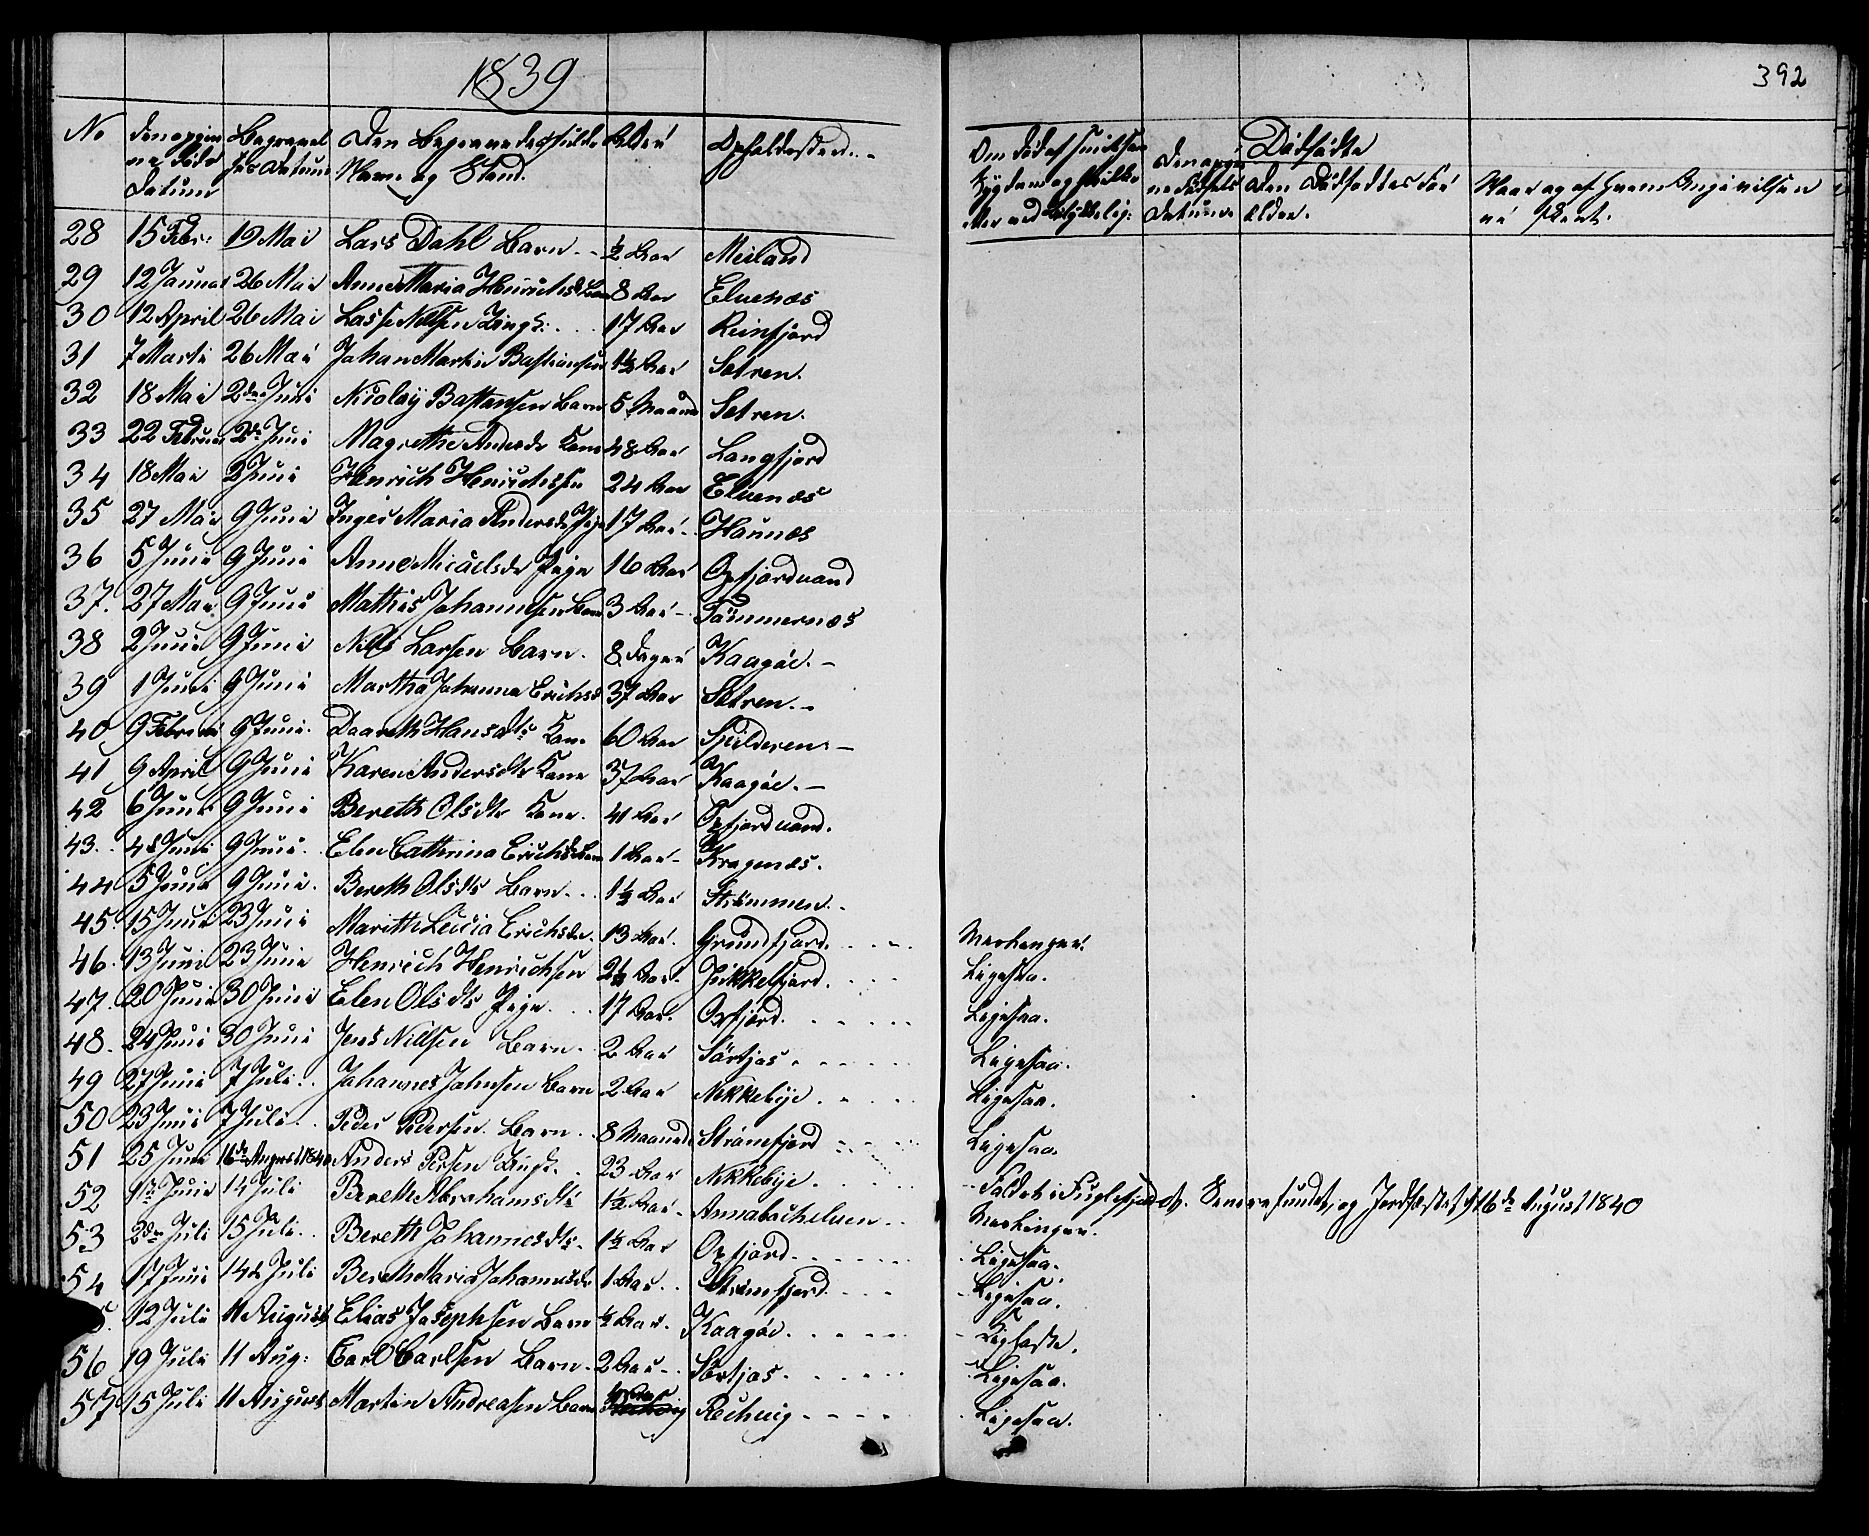 1839
392
No
den opgivne Døds Datum
Begravelses Datum
Den Begravedes fulde Navn og Stand.
Alder
Opholdssted
Om død af smitsom Sygdom og hvilken
Dødfødte
Den opgivne Fødsels Datum
Den Dødfødtes Forældre.
Naar og af hvem Angivelsen er skeet.
28 15 Febr: 19 Mai Lars Dahl Barn ½ Aar Meiland
29 12 Januar 26 Mai Anne Maria Henrichsd Barn 8 Aar Elvenæs
30 12 April 26 Mai Lasse Nilsen Ungk: 17 Aar Reinfjord
31 7 Marti 26 Mai Johan Martin Bastiansen 1½ Aar Setren.
32 18 Mai 2den Juni Nicolay Bastansen Barn 5 Maaned Setren.
33 22 Februar 2de Juni Magrethe Andersdr Kone 48 Aar Langfjord
34 18 Mai 2 Juni Henrich Henrichsen 24 Aar Elvenæs
35 27 Mai 9 Juni Inger Maria Andersdr Pige 17 Aar Hounæs
36 5 Juni 9 Juni Anne Micaelsdr Pige 16 Aar Oxfjordvand
37. 27 Mai 9 Juni Mathis Johannesen Barn 3 Aar Tømmernæs
38 2 Juni 9 Juni Nils Larsen Barn. 8 dager Kaagøe.
39 1 Juni 9 Juni Martha Johanna Erichsd 37 Aar Setren.
40 9 Februar 9 Juni. Daareth Hansdtr Kone 60 Aar Spilderen
41 9 April 9 Juni Karen Andersdtr Kone 37 Aar Kaagøe.
42 6 Juni 9 Juni Bereth Olsdtr Kone. 41 Aar Oxfjordvand.
43. 4de Juni 9 Juni. Elen Cathrina Erichsdr Barn 1 Aar Kragenæs.
44 5 Juni 9 Juni. Bereth Olsdtr Barn 1½ Aar Strømmen.
45. 15 Juni 23 Juni Marith Lucia Erichsdr. 13 Aar. Grundfjord. Meslinger.
46. 13 Juni 23 Juni Henrich Henrichsen 2½ Aar. Jøkkelfjord. Ligesaa.
47. 20 Juni 30 Juni Elen Olsdtr Pige 17 Aar. Oxfjord. Ligesaa.
48. 24 Juni 30 Juni Jens Nilsen Barn. 2 Aar Sørtjos. Ligesaa.
49 27 Juni 7 Juli. Johannes Johnsen Barn 2 Aar Nikkebye. Ligesaa.
50 23 Juni 7 Juli. Peder Pedersen. Barn 8 Maaned Strømfjord Ligesaa.
51 25 Juni 16de August 1840 Anders Persen Ungk. 23 Aar Nikkebye. Faldet i Fuglefjord, Senere fundet, og Jordfæstet d 16de August 1840
52 Juni 14 Juli Berethe Abrahamsdtr 1½ Aar Annabachelven Meslinger.
53 2den Juli 15 Juli. Bereth Johannesdtr. 1½ Aar Oxfjord. Ligesaa.
54 17 Juni 14de Juli Bereth Maria Johannesdr 1 Aar. Strømfjord. Ligesaa.
5. 12 Juli 11 August Elias Josephsen Barn ½ Aar. Kaagøe.
56 19 Juli 11 Aug: Carl Carlsen Barn. 2 Aar Sørtjos. Ligesaa.
57 15 Juli 11 August Martin Andreasen Barn Rechvig Ligesaa.